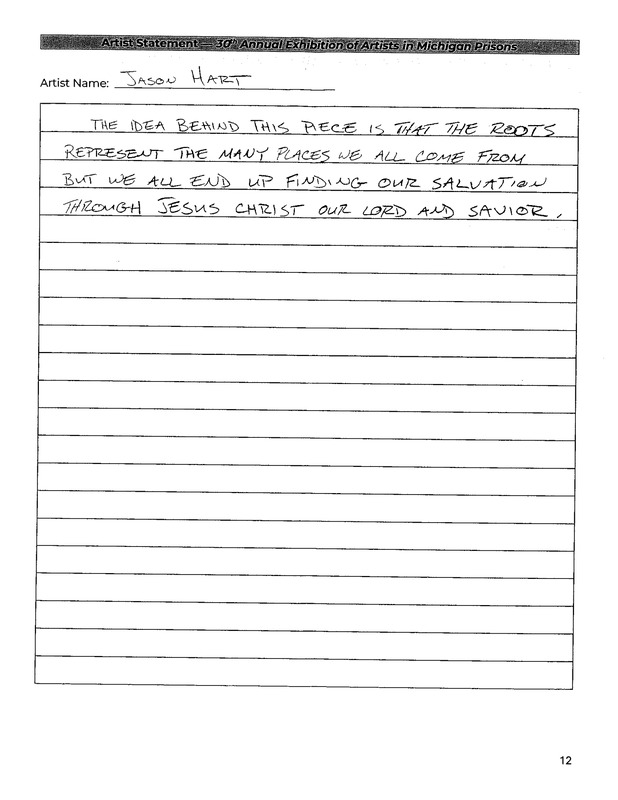 Artist Statement — 30th Annual Exhibition of Artists in Michigan Prisons
Artist Name: JASON HART
THE IDEA BEHIND THIS PIECE IS THAT THE ROOTS
REPRESENT THE MANY PLACES WE ALL COME FROM
BUT WE ALL END UP FINDING OUR SALVATION
THROUGH JESUS CHRIST OUR LORD AND SAVIOR.
12